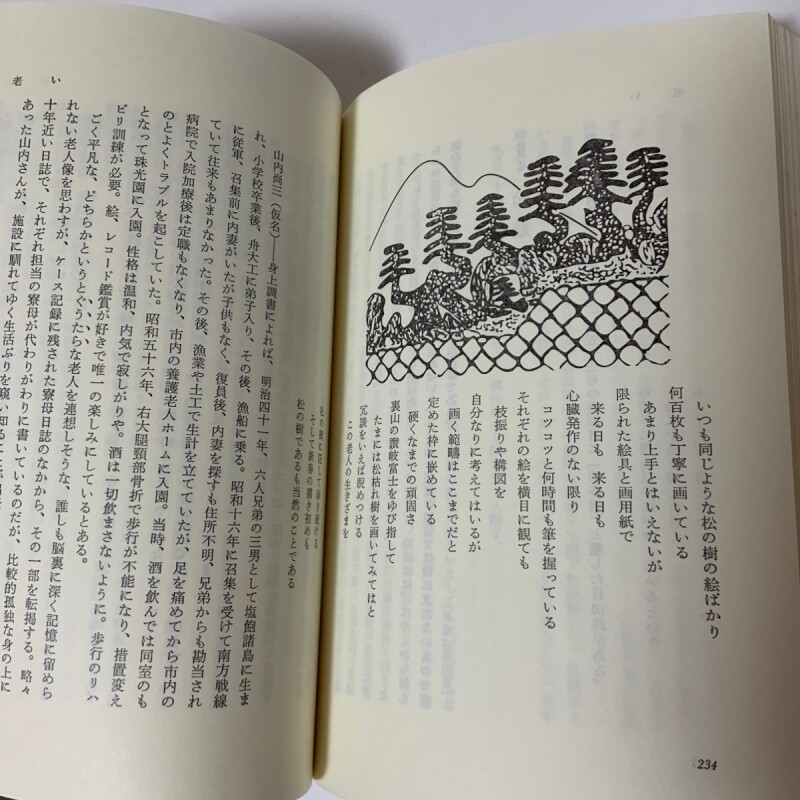 いつも同じような松の樹の絵ばかり
何百枚も丁寧に画いている
あまり上手とはいえないが
限られた絵具と画用紙で
来る日も 来る日も
心臓発作のない限り
コツコツと何時間も筆を握っている
それぞれの絵を横目に観ても
枝振りや構図を
自分なりに考えてはいるが
画く範疇はここまでだと
定めた枠に嵌めている
硬くなまでの頑固さ
裏山の讃岐富士をゆび指して
たまには松枯れ樹を画いてみてはと
冗談をいえば睨めつける
この老人の生きざまを
234
そして新春の書き初めも
松の樹であるも当然のことである
山内尚三(仮名)――身上調書によれば、明治四十一年、六人兄弟の三男として塩飽諸島に生ま
れ、小学校卒業後、舟大工に弟子入り、その後、漁船に乗る。昭和十六年に召集を受けて南方戦線
に従軍、召集前に内妻がいたが子供もなく、復員後、内妻を探すも住所不明、兄弟からも勘当され
ていて往来もあまりなかった。その後、漁業や土工で生計を立てていたが、足を痛めてから市内の
病院で入院加療後は定職もなくなり、市内の養護老人ホームに入園。当時、酒を飲んでは同室のも
のとよくトラブルを起こしていた。昭和五十六年、右大腿頸部骨折で歩行が不能になり、措置変え
となって珠光園に入園。性格は温和、内気で寂しがりや。酒は一切飲まさないように。歩行のリハ
ビリ訓練が必要。絵、レコード鑑賞が好きで唯一の楽しみにしているとある。
ごく平凡な、どちらかというとぐうたらな老人を連想しそうな、誰しも脳裏に深く記憶に留めら
れない老人像を思わすが、ケース記録に残された寮母日誌のなかから、その一部を転掲する。略々
十年近い日誌で、それぞれ担当の寮母が代わりがわりに書いているのだが、比較的孤独な身の上に
あった山内さんが、施設に馴れてゆく生活ぶりを窺い知る
老い